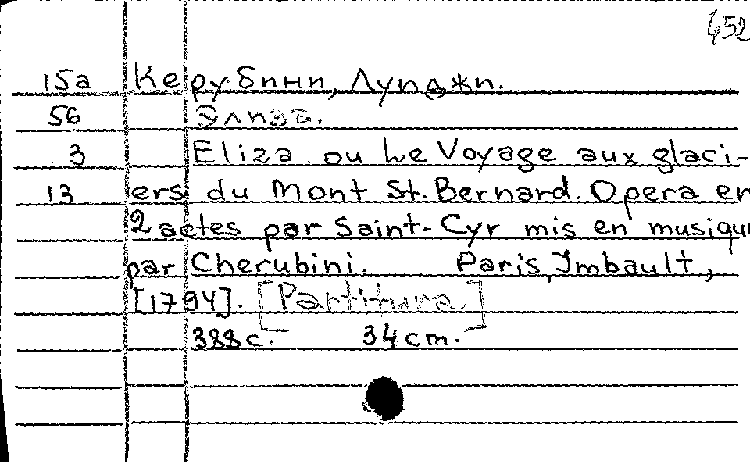 652
15а Керубини, Луиджи.
56 Элиза.
3 Eliza ou Le Voyage aux glaci-
13 ers du Mont St. Bernard. Opera en
2 actes par Saint-Cyr mis en musiqu
par Cherubini. Paris, Imbault,
[1794]. [Partitura]
388 с. 34 cm.